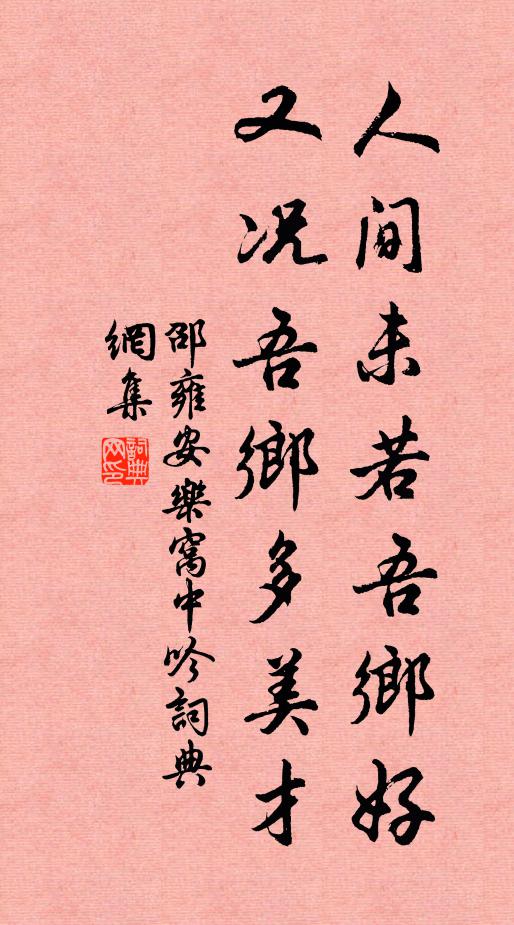 人間未若吾鄉好
又況吾鄉多美才
邵雍安樂窩中吟詞典
網集
詞典網印